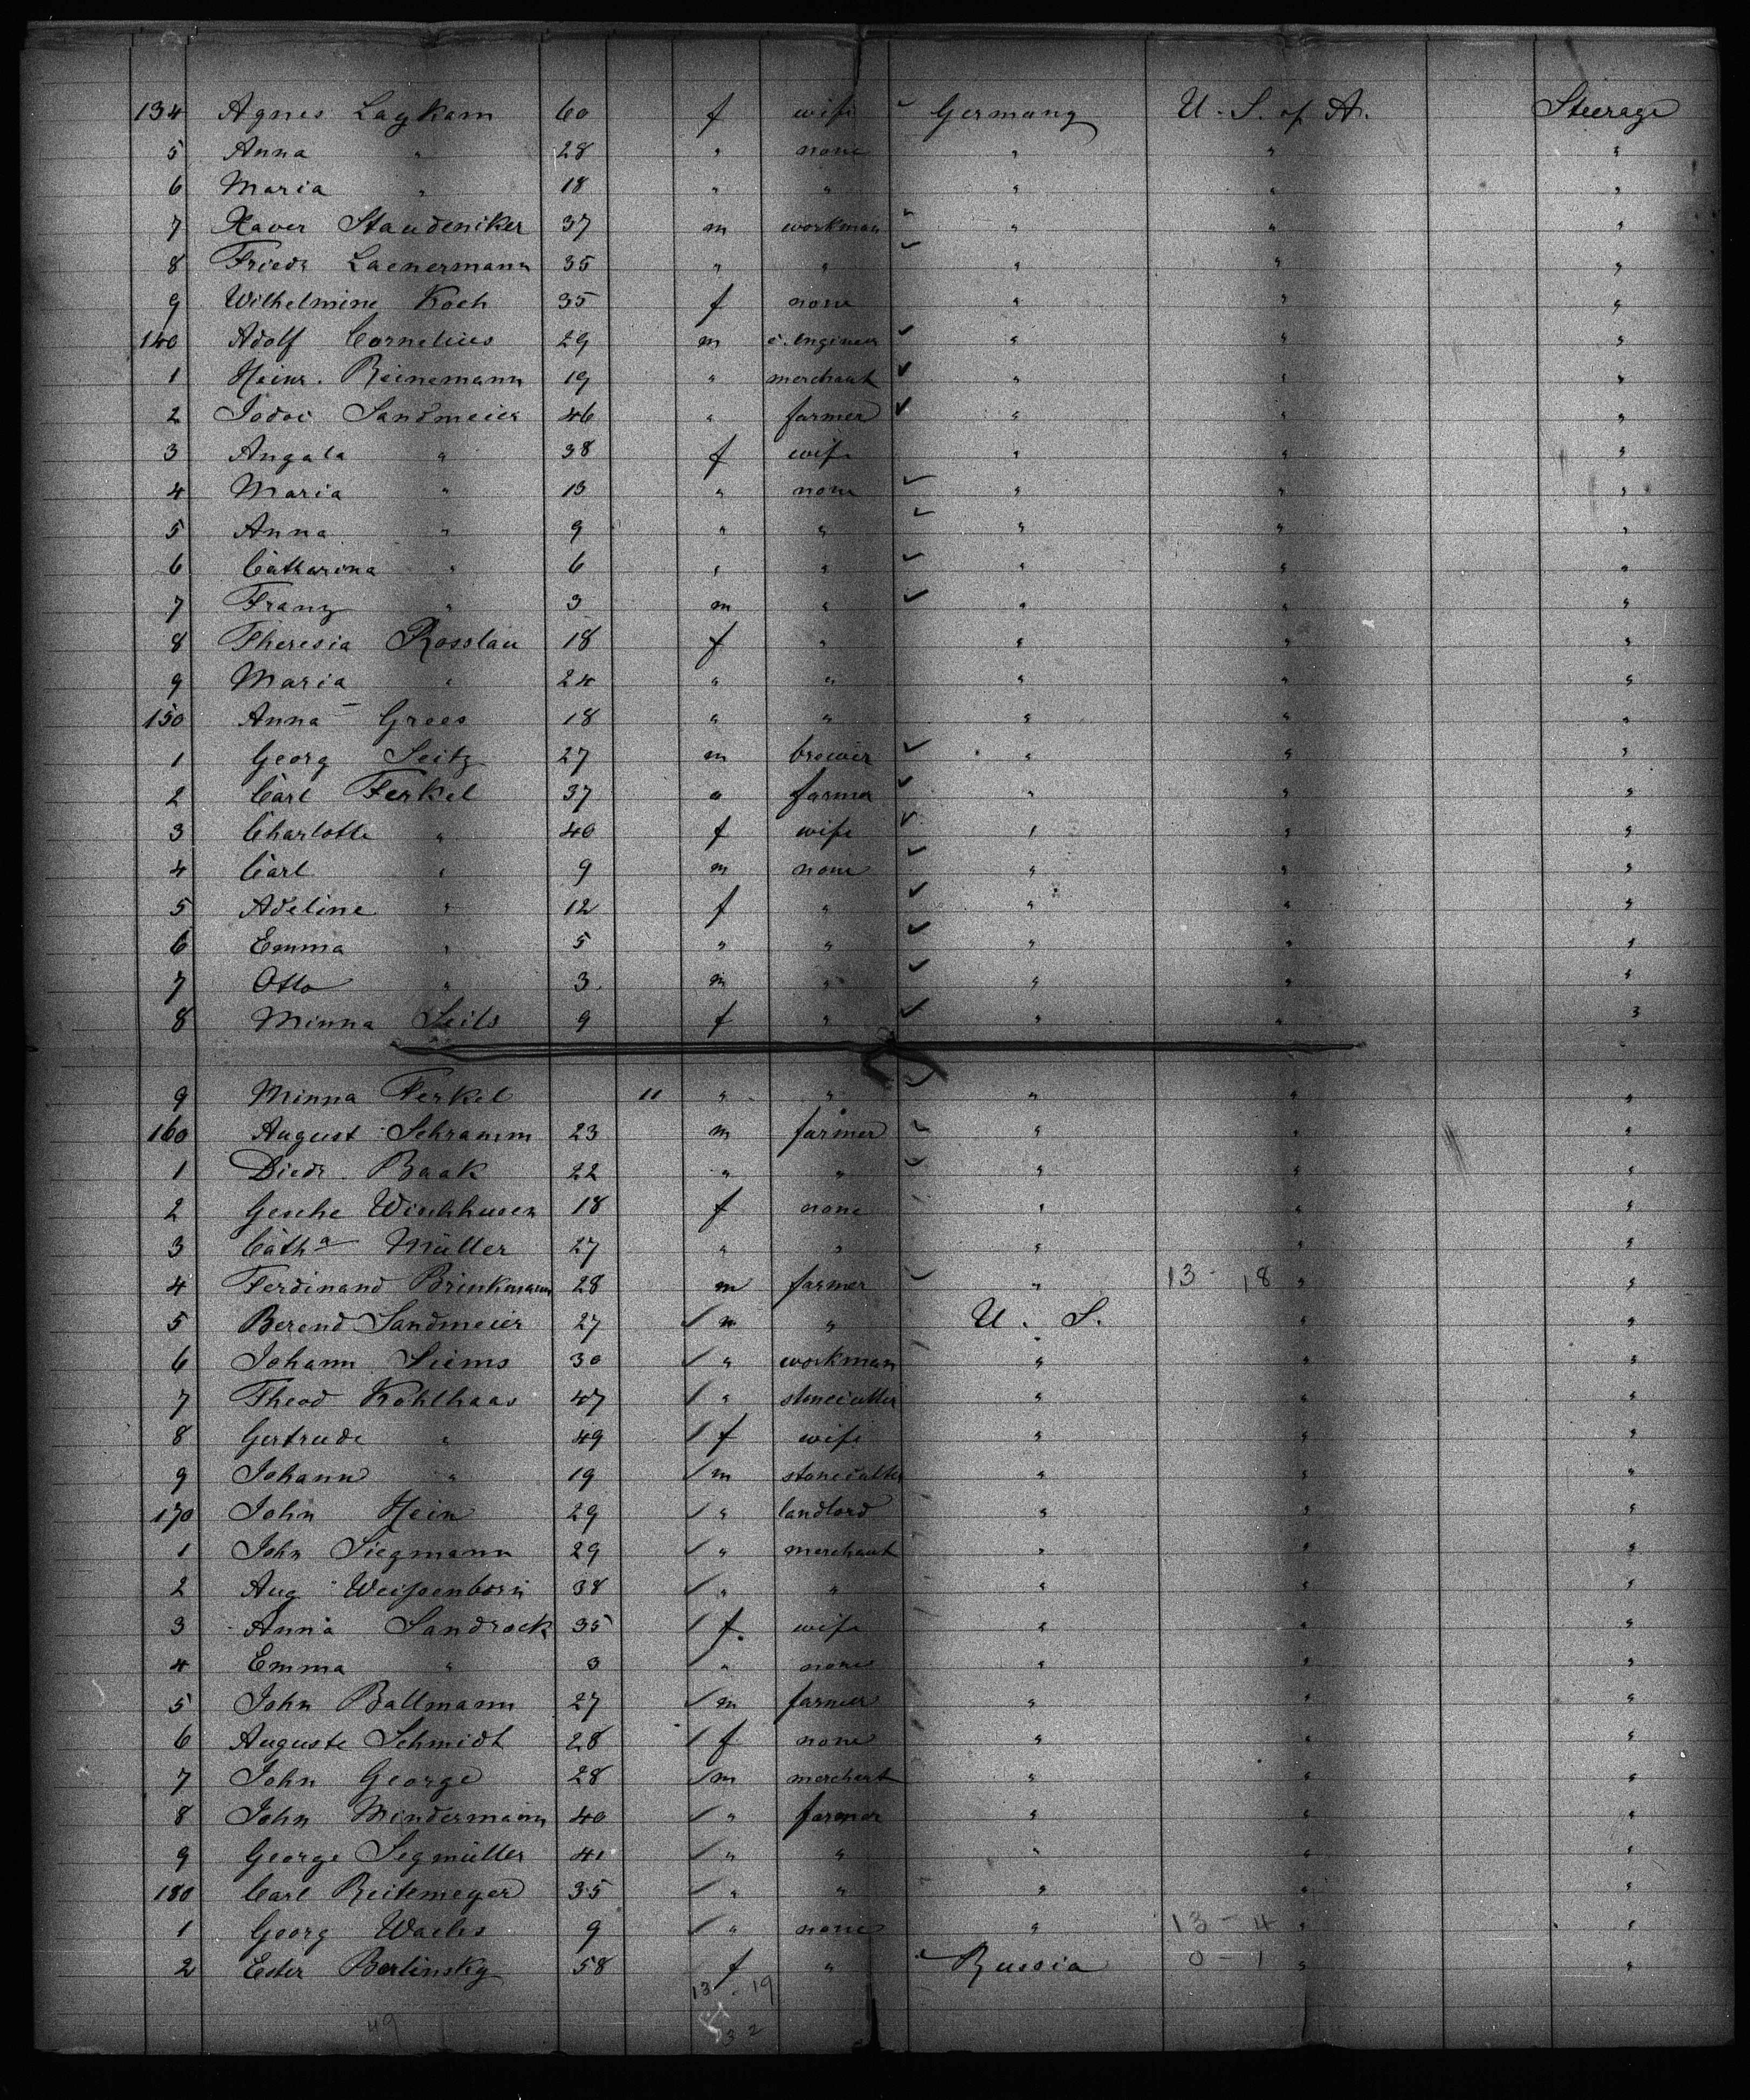 134 Agnes Lagkam 60 f wife Germany U. S. of A. Steerage
5 Anna " 28 " none " " "
6 Maria " 18 " " " " "
7 Xaver Staudeniker 37 m workman " " "
8 Friedr Laenermann 35 " " " " "
9 Wilhelmine Koch 35 f none " " "
140 Adolf Cornelius 29 m c. engineer " " "
1 Heinr. Reinemann 19 " merchant " " "
2 Jodoc Sandmeier 46 " farmer " " "
3 Angala " 38 f wife " " "
4 Maria " 13 " none " " "
5 Anna " 9 " " " " "
6 Catharina " 6 " " " " "
7 Franz " 3 m " " " "
8 Theresia Rosslau 18 f " " " "
9 Maria " 24 " " " " "
150 Anna Grees 18 " " " " "
1 Georg Seitz 27 m brewer " " "
2 Carl Ferkel 37 " farmer " " "
3 Charlotte " 40 f wife " " "
4 Carl " 9 m none " " "
5 Adeline " 12 f " " " "
6 Emma " 5 " " " " "
7 Otto " 3 m " " " "
8 Minna Seils 9 f " " " "
9 Minna Ferkel 11 " " " " "
160 August Schramm 23 m farmer " " "
1 Diedr. Baak 22 " " " " "
2 Gesche Wischhusen 18 f none " " "
3 Catha Müller 27 " " " " "
4 Ferdinand Brinkmann 28 m farmer " 13 - 18 " "
5 Berend Sandmeier 27 m " U. S. " "
6 Johann Siems 30 " workman " " "
7 Theod Kohlhaas 47 " stonecutter " " "
8 Gertrude " 49 f wife " " "
9 Johann " 19 m stonecutter " " "
170 John Hein 29 " landlord " " "
1 John Siegmann 29 " merchant " " "
2 Aug Weißenborn 38 " " " " "
3 Anna Sandrock 35 f. wife " " "
4 Emma " 3 " none " " "
5 John Ballmann 27 m farmer " " "
6 Auguste Schmidt 28 f none " " "
7 John George 28 m merchant " " "
8 John Mindermann 40 " farmer " " "
9 George Segmüller 41 " " " " "
180 Carl Reitemeyer 35 " " " " "
1 Georg 9 " none " 13 - 4 " "
2 Ester Berlinsky 58 f " Russia 0 - 1 " "
13 . 19
49 32